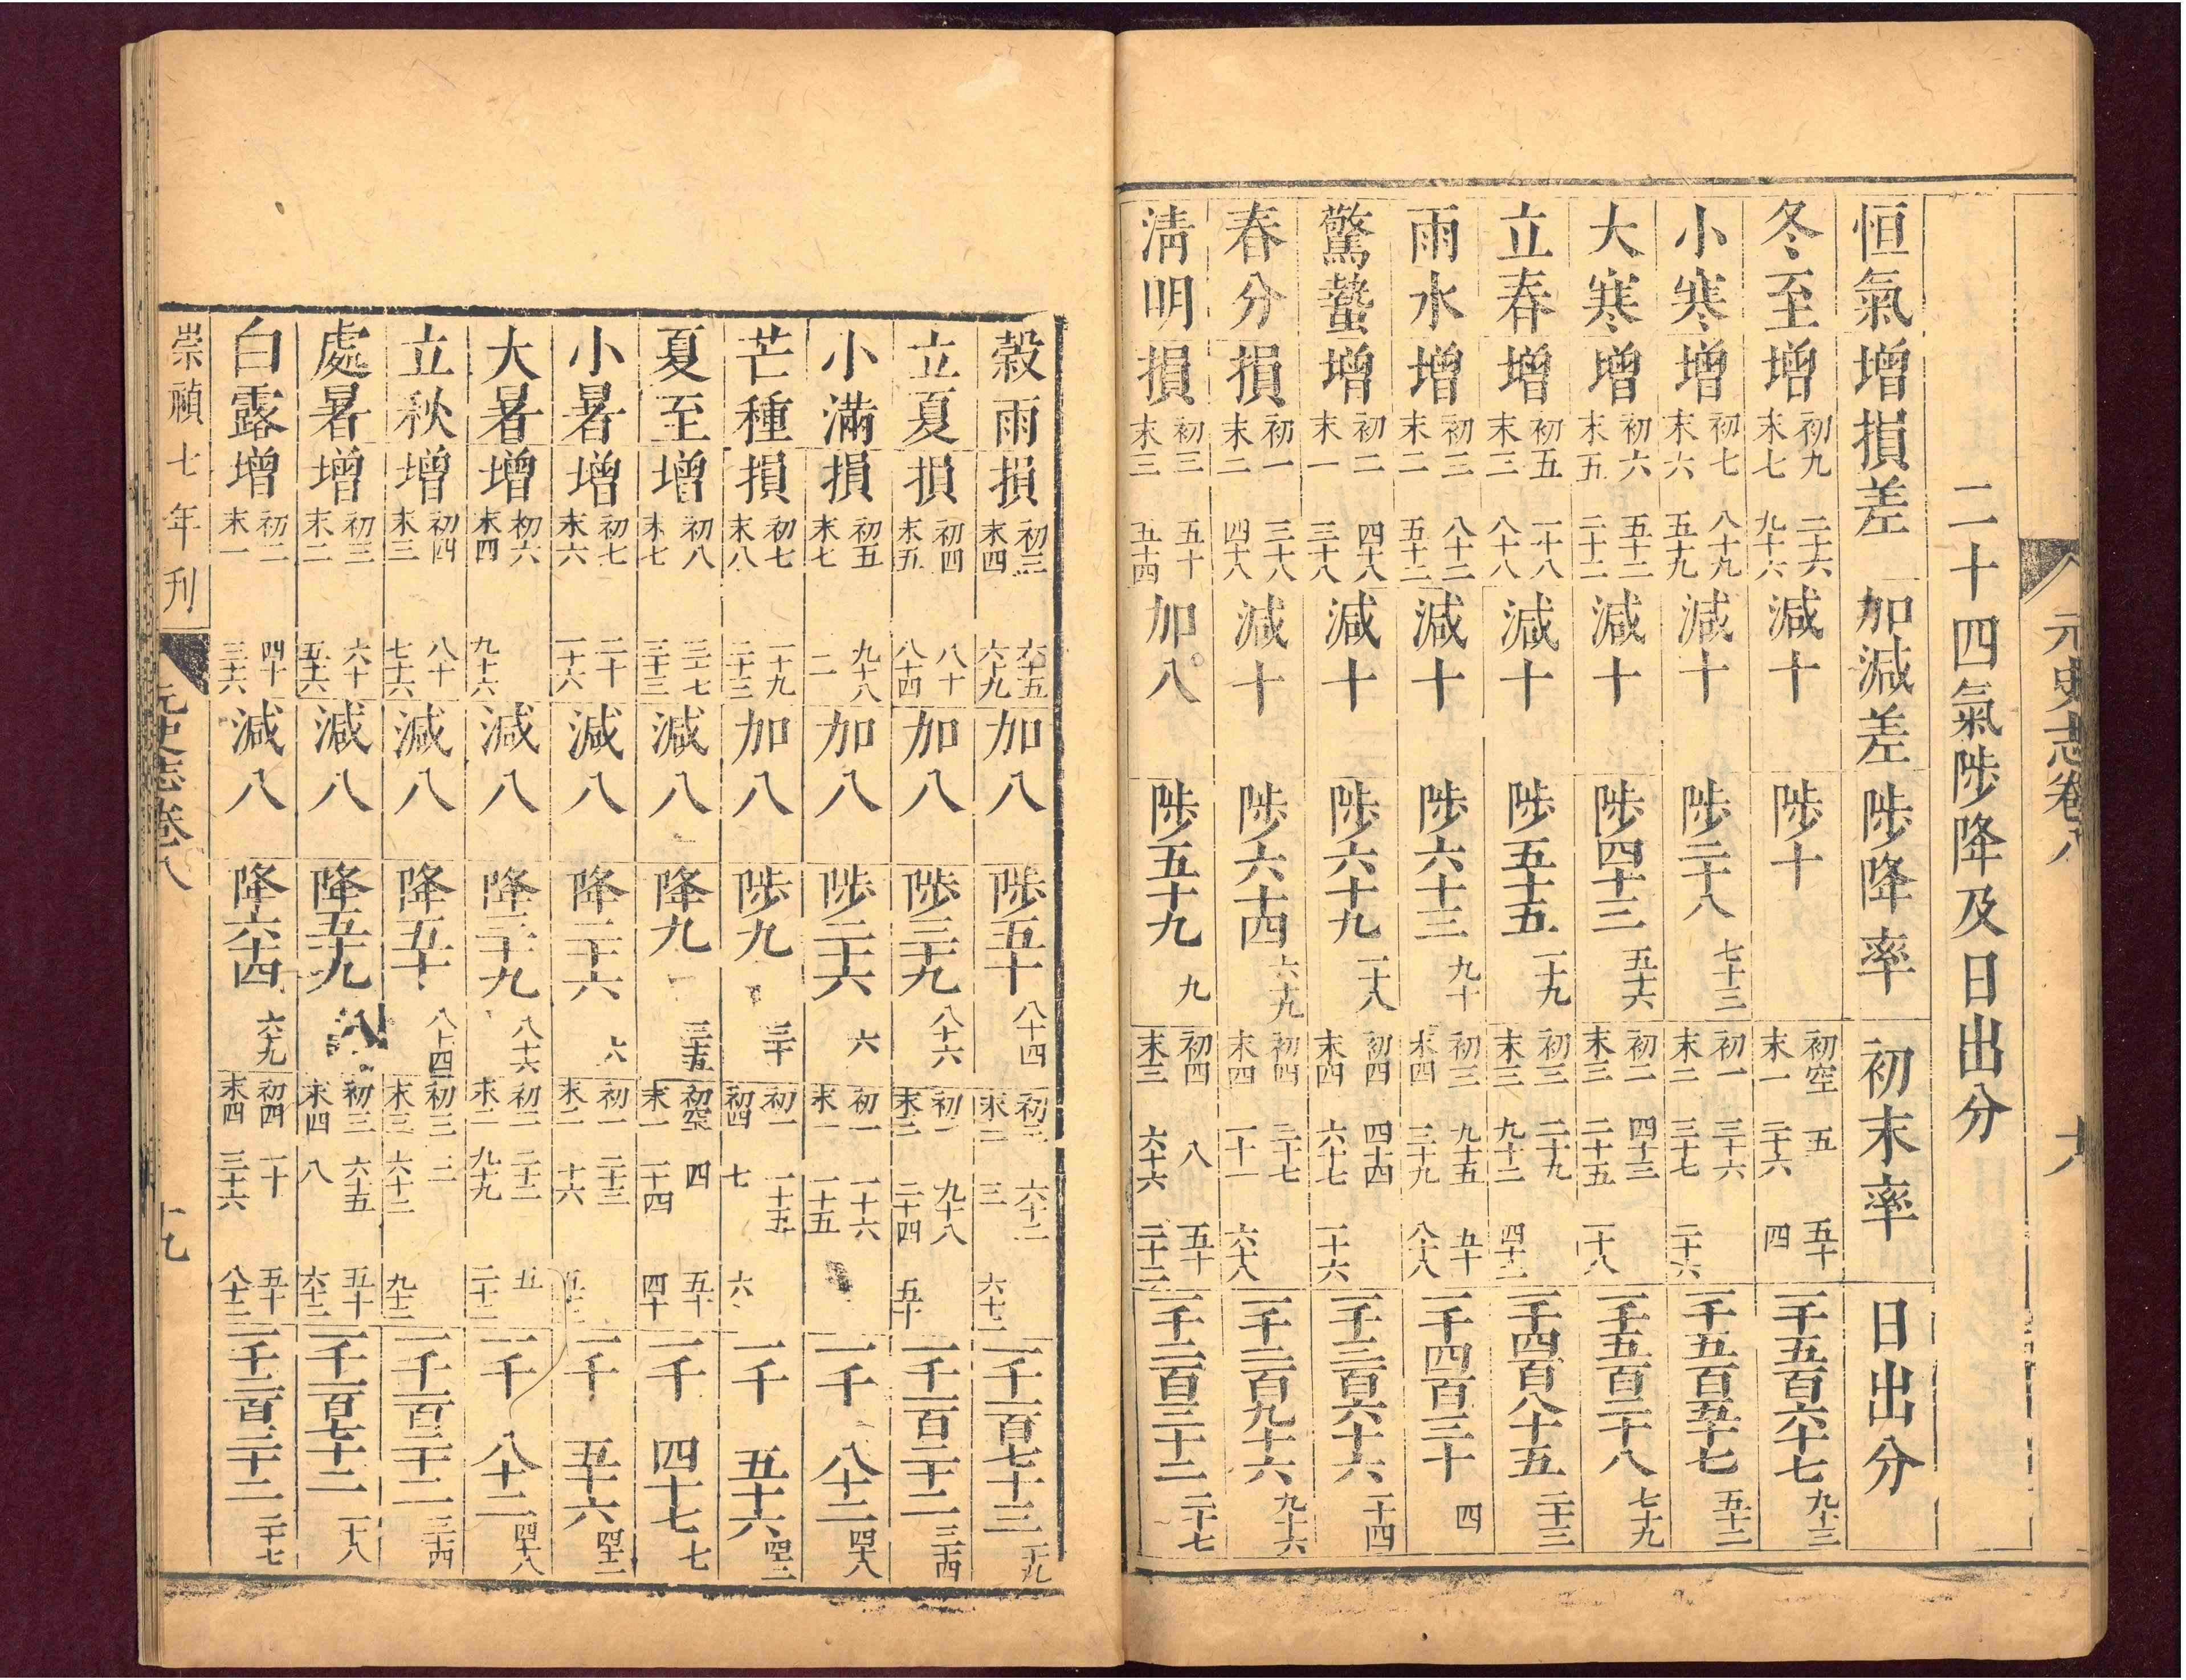 元史志卷八
二十四氣陟降及日出分
恒氣 增損差 加減差 陟降率 初末率 日出分
冬至 增 初九 二十六 末七 九十六 減十 陟十 初空 五 五十 末一 二十六 四 一千五百六十七 九十三
小寒 增 初七 八十九 末六 五十九 減十 陟二十八 七十三 初一 三十六 末二 三十七 二十六 一千五百五十七 五十三
大寒 增 初六 五十二 末五 二十二 減十 陟四十三 五十六 初二 四十三 末三 二十五 一十八 一千五百二十八 七十九
立春 增 初五 一十八 末三 八十八 減十 陟五十五 一十九 初三 二十九 末三 九十二 四十二 一千四百八十五 二十三
雨水 增 初三 八十二 末二 五十二 減十 陟六十三 九十 初三 九十五 五十 末四 三十九 八十八 一千四百三十 四
驚蟄 增 初二 四十八 末一 三十八 減十 陟六十九 一十八 初四 四十四 末四 六十七 一十六 一千三百六十六 一十四
春分 損 初一 三十八 末二 四十八 減十 陟六十四 六十九 初四 二十七 末四 一十一 六十八 一千二百九十六 九十六
淸明 損 初三 五十 末三 五十四 加八 陟五十九 九 初四 八 五十 末三 六十六 二十二 一千二百三十二 二十七
穀雨 損 初三 六十五 末四 六十九 加八 陟五十 八十四 初三 六十二 末二 三 六十二 一千一百七十三 一十九
立夏 損 初四 八十 末五 八十四 加八 陟三十九 八十六 初二 九十八 末二 二十四 五十 一千一百二十二 三十四
小滿 損 初五 九十八 末七 二 加八 陟二十六 六 初一 一十六 末一 一十五 一千 八十二 四十八
芒種 損 初七 一十九 末八 二十三 加八 陟九 三十 初一 一十五 初四 七 六 一千 五十六 四十二
夏至 增 初八 三十七 末七 三十三 減八 降九 三十五 初空 四 五十 末一 一十四 四十 一千 四十七 七
小暑 增 初七 二十 末六 一十六 減八 降二十六 六 初一 二十三 末二 十六 一千 五十六 四十二
大暑 增 初六 末四 九十六 減八 降三十九 八十六 初二 二十二 五 末二 九十九 二十二 一千 八十二 四十八
立秋 增 初四 八十 末三 七十六 減八 降五十 八十四 初三 二 末三 六十二 九十二 一千一百二十二 三十四
處暑 增 初三 六十 末二 五十六 減八 降五十九 初三 六十五 五十 末四 八 六十二 一千一百七十二 一十八
白露 增 初二 四十 末一 三十六 減八 降六十四 六十九 初四 一十 五十 末四 三十六 八十二 一千二百三十二 二十七
崇禎七年刊
元史志卷八
十九